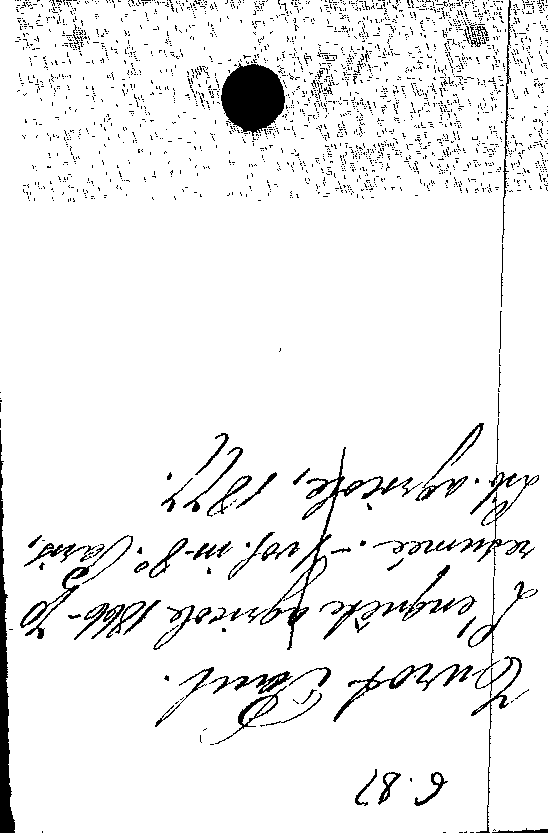 6.87
Turot Paul.
L'enquête agricole 1866-70
résumée. - 1 vol. in-8°. Paris,
Lib. agricole, 1877.